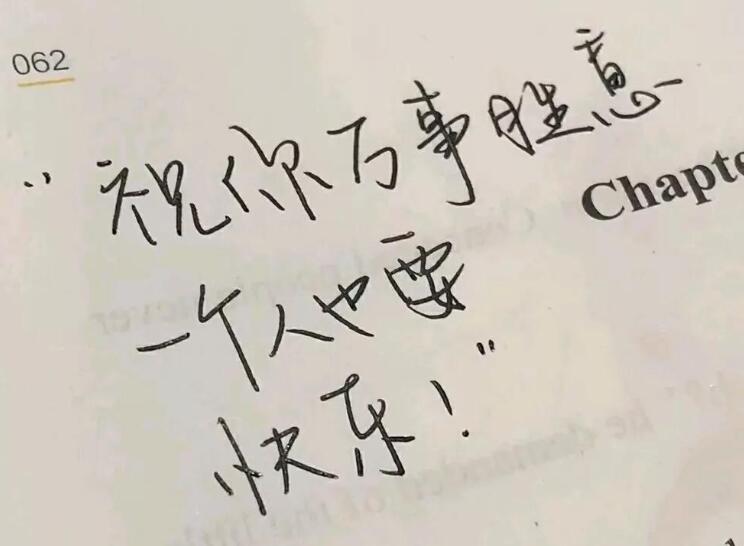 062
"祝你万事胜意
Chapte
一个人也要
快乐!"